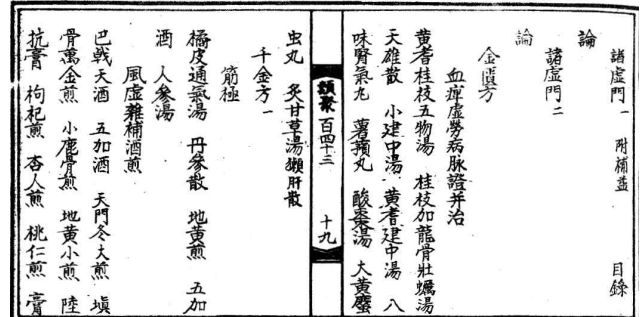 諸虛門一 附補益 目錄
論
諸虛門二
論
金匱方
血痺虛勞病脉證并治
黃耆桂枝五物湯 桂枝加龍骨牡蠣湯
天雄散 小建中湯 黃耆建中湯 八
味腎氣丸 薯蕷丸 酸棗湯 大黃䗪
類聚 百四十三 十九
虫丸 炙甘草湯 獺肝散
千金方一
筋極
橘皮通氣湯 丹參散 地黃煎 五加
酒 人參湯
風虛雜補酒煎
巴戟天酒 五加酒 天門冬大煎 塡
骨萬金煎 小鹿骨煎 地黃小煎 陸
抗膏 枸杞煎 杏人煎 桃仁煎 膏